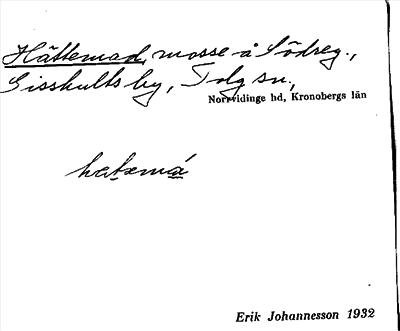 Hättemad, mosse å Södreg.,
Gisshults by, Tdg sn,
Norrvidinge hd, Kronobergs län
hatemá
Erik Johannesson 1932